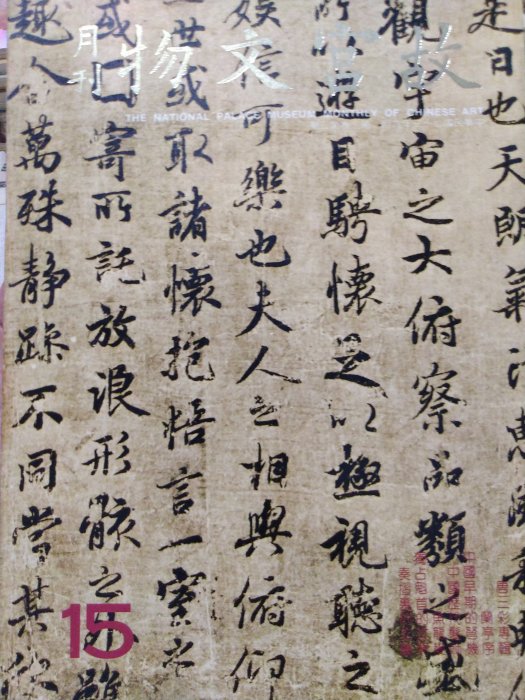 故宮文物月刊
THE NATIONAL PALACE MUSEUM MONTHLY OF CHINESE ART
是日也天朗氣清惠風和
觀宇宙之大俯察品類之盛
所以遊目騁懷足以極視聽之
娛信可樂也夫人之相與俯仰
一世或取諸懷抱悟言一室之
或因寄所託放浪形骸之外雖
趣舍萬殊靜躁不同當其欣
唐三彩專輯
蘭亭序
中國早期的
15